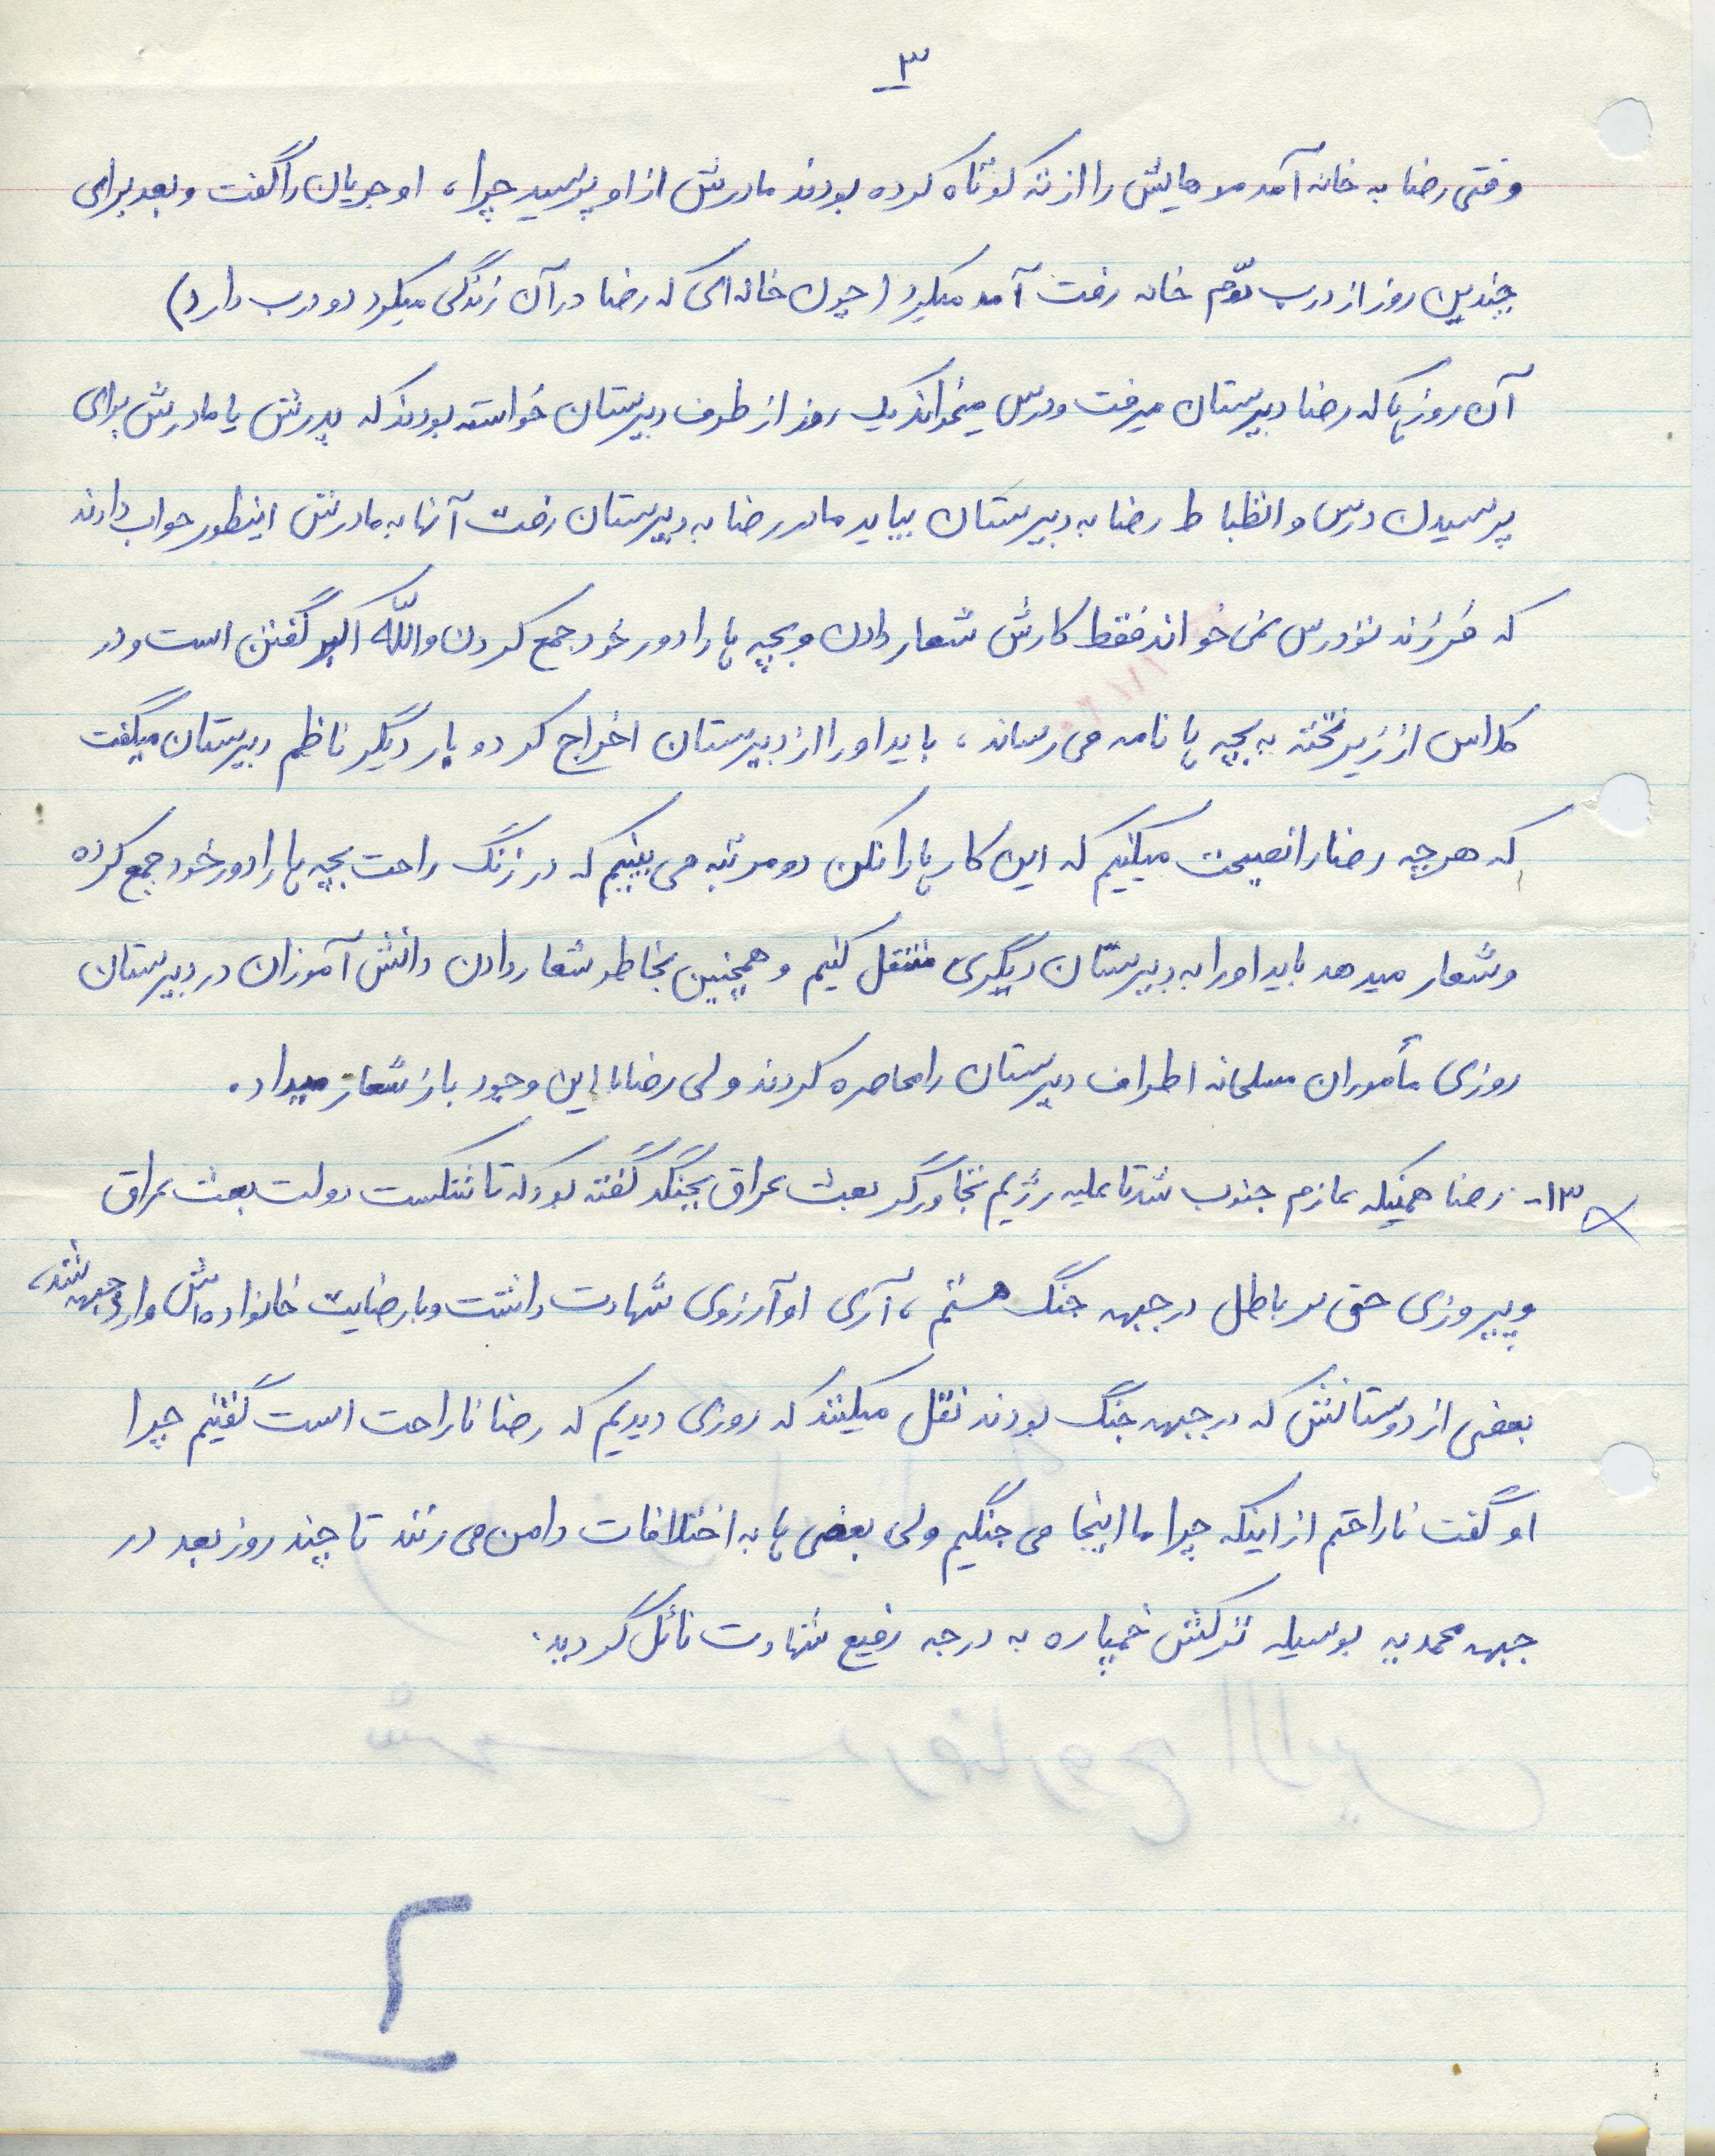 ۳
وقتی رضا به خانه آمد موهایش را از ته کوتاه کرده بودند مادرش از او پرسید چرا، او جریان را گفت و بعد برای
چندین روز از درب دوّم خانه رفت آمد میکرد (چون خانه‌ای که رضا در آن زندگی میکرد دو درب دارد)
آن روزها که رضا دبیرستان میرفت و درس میخواند یک روز از طرف دبیرستان خواسته بودند که پدرش یا مادرش برای
پرسیدن درس و انظباط رضا به دبیرستان بیاید مادر رضا به دبیرستان رفت آنها به مادرش اینطور جواب دادند
که فرزند تو درس نمی خواند فقط کارش شعار دادن و بچه ها را دور خود جمع کردن و اللّه اکبر گفتن است و در
کلاس از زیر تخته به بچه ها نامه می رساند، باید او را از دبیرستان اخراج کرد و بار دیگر ناظم دبیرستان میگفت
که هر چه رضا را نصیحت میکنیم که این کارها را نکن دو مرتبه می بینیم که در زنگ راحت بچه ها را دور خود جمع کرده
و شعار میدهد باید او را به دبیرستان دیگری منتقل کنیم و همچنین بخاطر شعار دادن دانش آموزان در دبیرستان
روزی مأموران مسلحانه اطراف دبیرستان را محاصره کردند ولی رضا با این وجود باز شعار میداد.
۱۳- رضا همینکه عازم جنوب شد تا علیه رژیم تجاوزگر بعث عراق بجنگد گفته بود که تا شکست دولت بعث عراق
و پیروزی حق بر باطل در جبهه جنگ هستم، آری او آرزوی شهادت داشت و با رضایت خانواده‌اش وارد جبهه شد،
بعضی از دوستانش که در جبهه جنگ بودند نقل میکنند که روزی دیدیم که رضا ناراحت است گفتیم چرا
او گفت ناراحتم از اینکه چرا ما اینجا می جنگیم ولی بعضی ها به اختلافات دامن می زنند تا چند روز بعد در
جبهه محمدیه بوسیله ترکش خمپاره به درجه رفیع شهادت نائل گردید.
۲